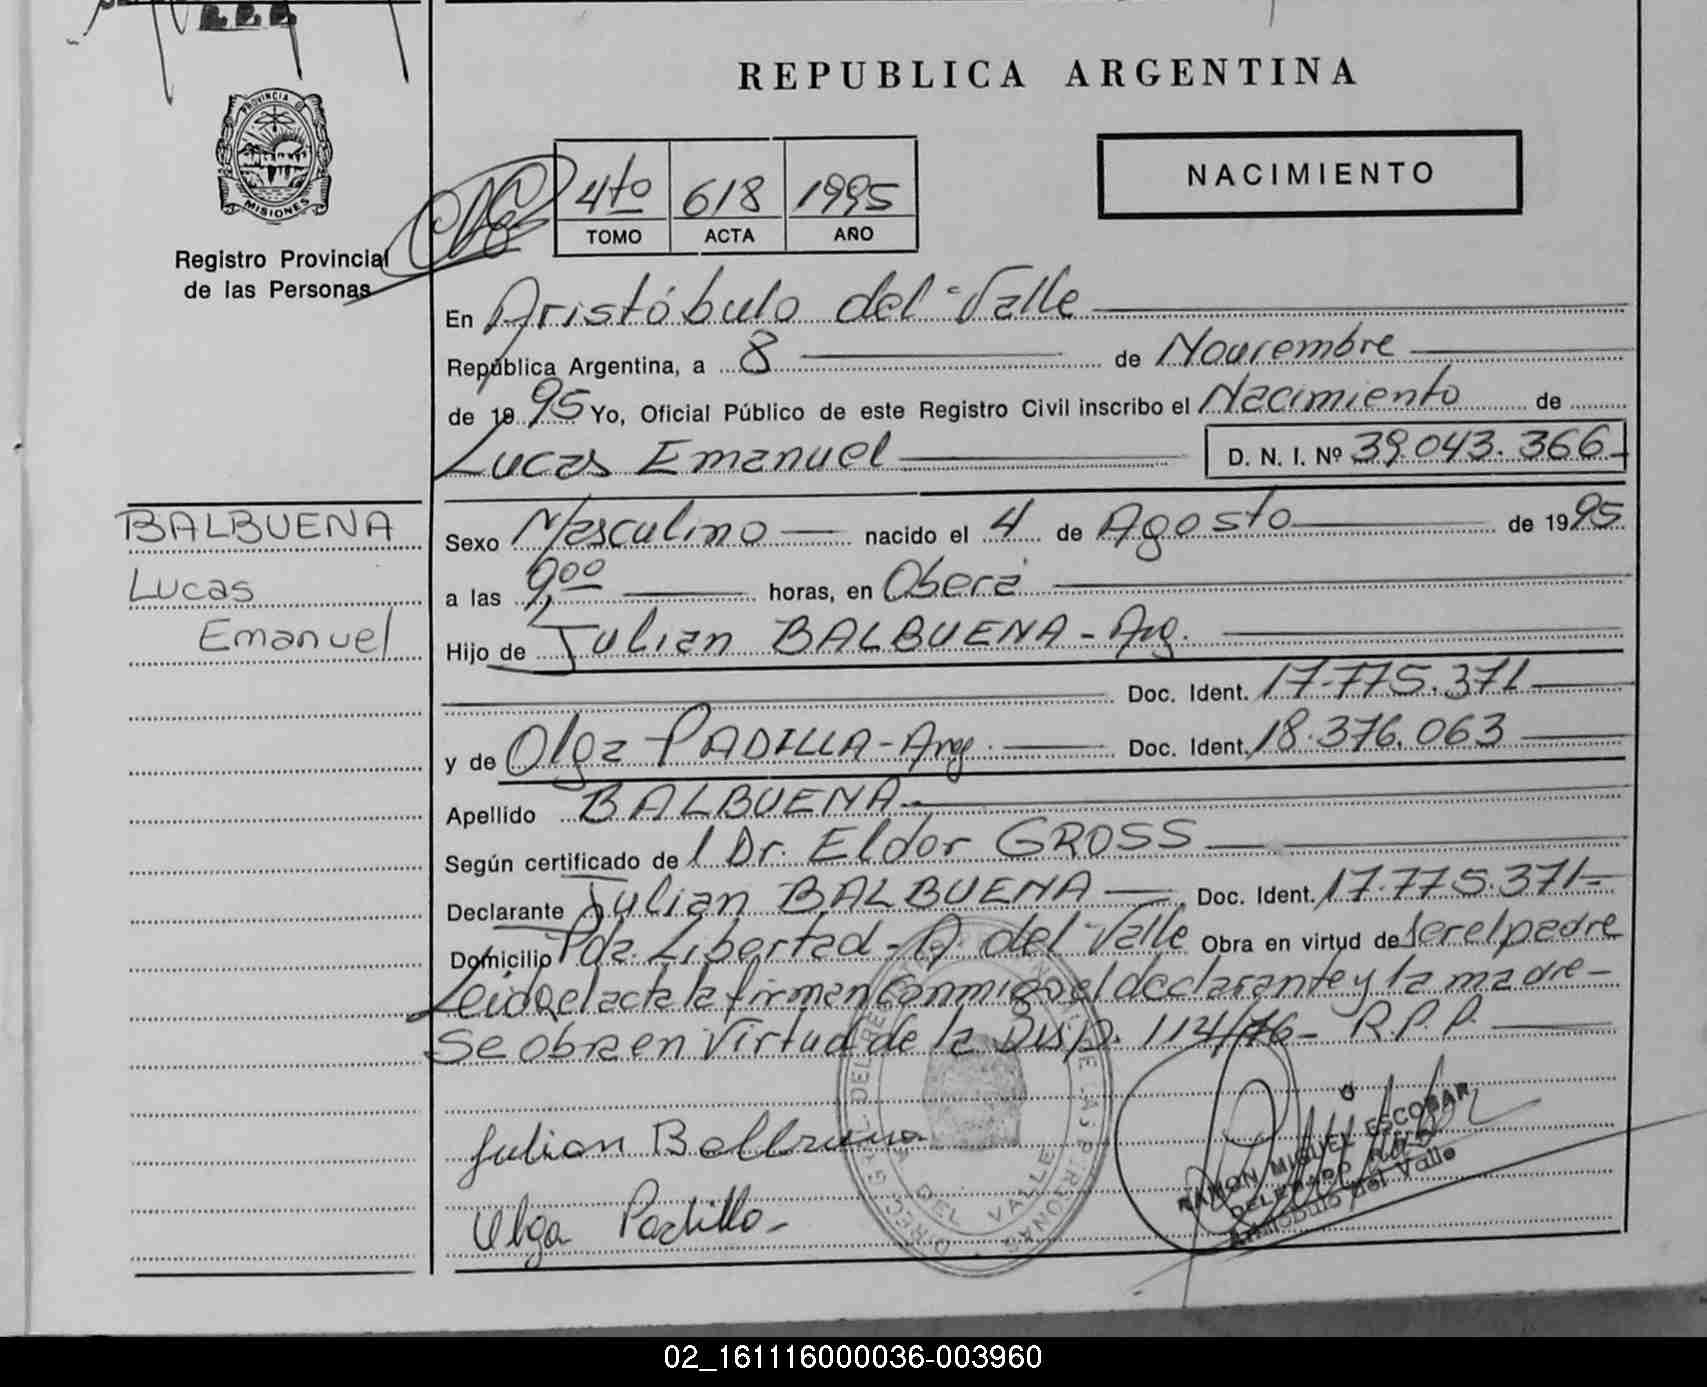 REPUBLICA ARGENTINA
PROVINCIA DE
MISIONES
Registro Provincial
de las Personas
4to 618 1995
TOMO ACTA AÑO
NACIMIENTO
En Aristóbulo del Valle
República Argentina, a 8 de Noviembre
de 1995 Yo, Oficial Público de este Registro Civil inscribo el Nacimiento de
Lucas Emanuel D. N. I. Nº 39.043.366
BALBUENA
Lucas
Emanuel
Sexo Masculino nacido el 4 de Agosto de 1995
a las 9,00 horas, en Oberá
Hijo de Julian BALBUENA - Arg.
Doc. Ident. 17.775.371
y de Olga PADILLA - Arg. Doc. Ident. 18.376.063
Apellido BALBUENA
Según certificado de l Dr. Eldor GROSS
Declarante Julian BALBUENA Doc. Ident. 17.775.371
Domicilio Pda. Libertad - A. del Valle Obra en virtud de ser el padre
Leida el acta la firman conmigo el declarante y la madre -
Se obra en virtud de la Disp. 114/76 - R.P.P.
Julian Balbuena
Olga Padilla
DEL VALLE
RAMON MIGUEL ESCOBAR
DELEGADO
Aristobulo del Valle
02_161116000036-003960